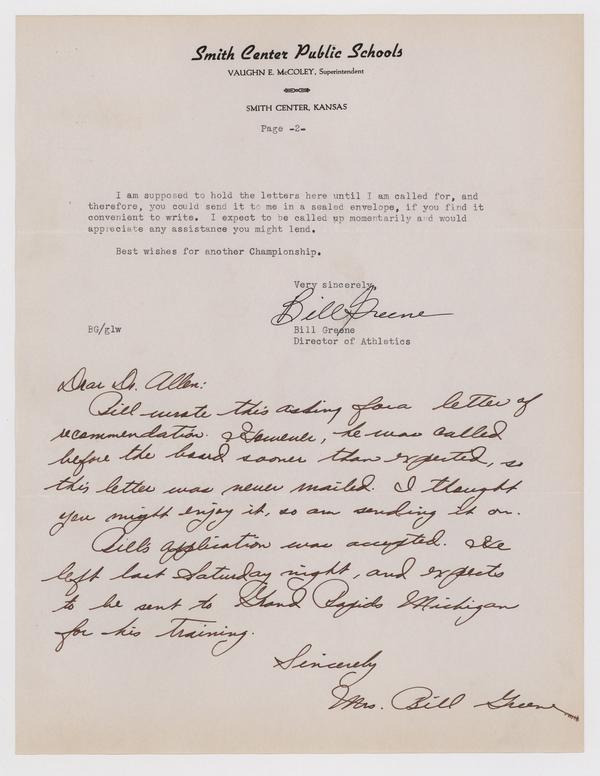 Smith Center Public Schools
VAUGHN E. McCOLEY, Superintendent
SMITH CENTER, KANSAS
Page -2-
I am supposed to hold the letters here until I am called for, and
therefore, you could send it to me in a sealed envelope, if you find it
convenient to write. I expect to be called up momentarily and would
appreciate any assistance you might lend.
Best wishes for another Championship.
Very sincerely,
Bill Greene
BG/glw
Bill Greene
Director of Athletics
Dear Dr. Allen:
Bill wrote this asking for a letter of
recommendation. However, he was called
before the board sooner than expected, so
this letter was never mailed. I thought
you might enjoy it, so am sending it on.
Bill's application was accepted. He
left last Saturday night, and expects
to be sent to Grand Rapids Michigan
for his training.
Sincerely
Mrs. Bill Greene